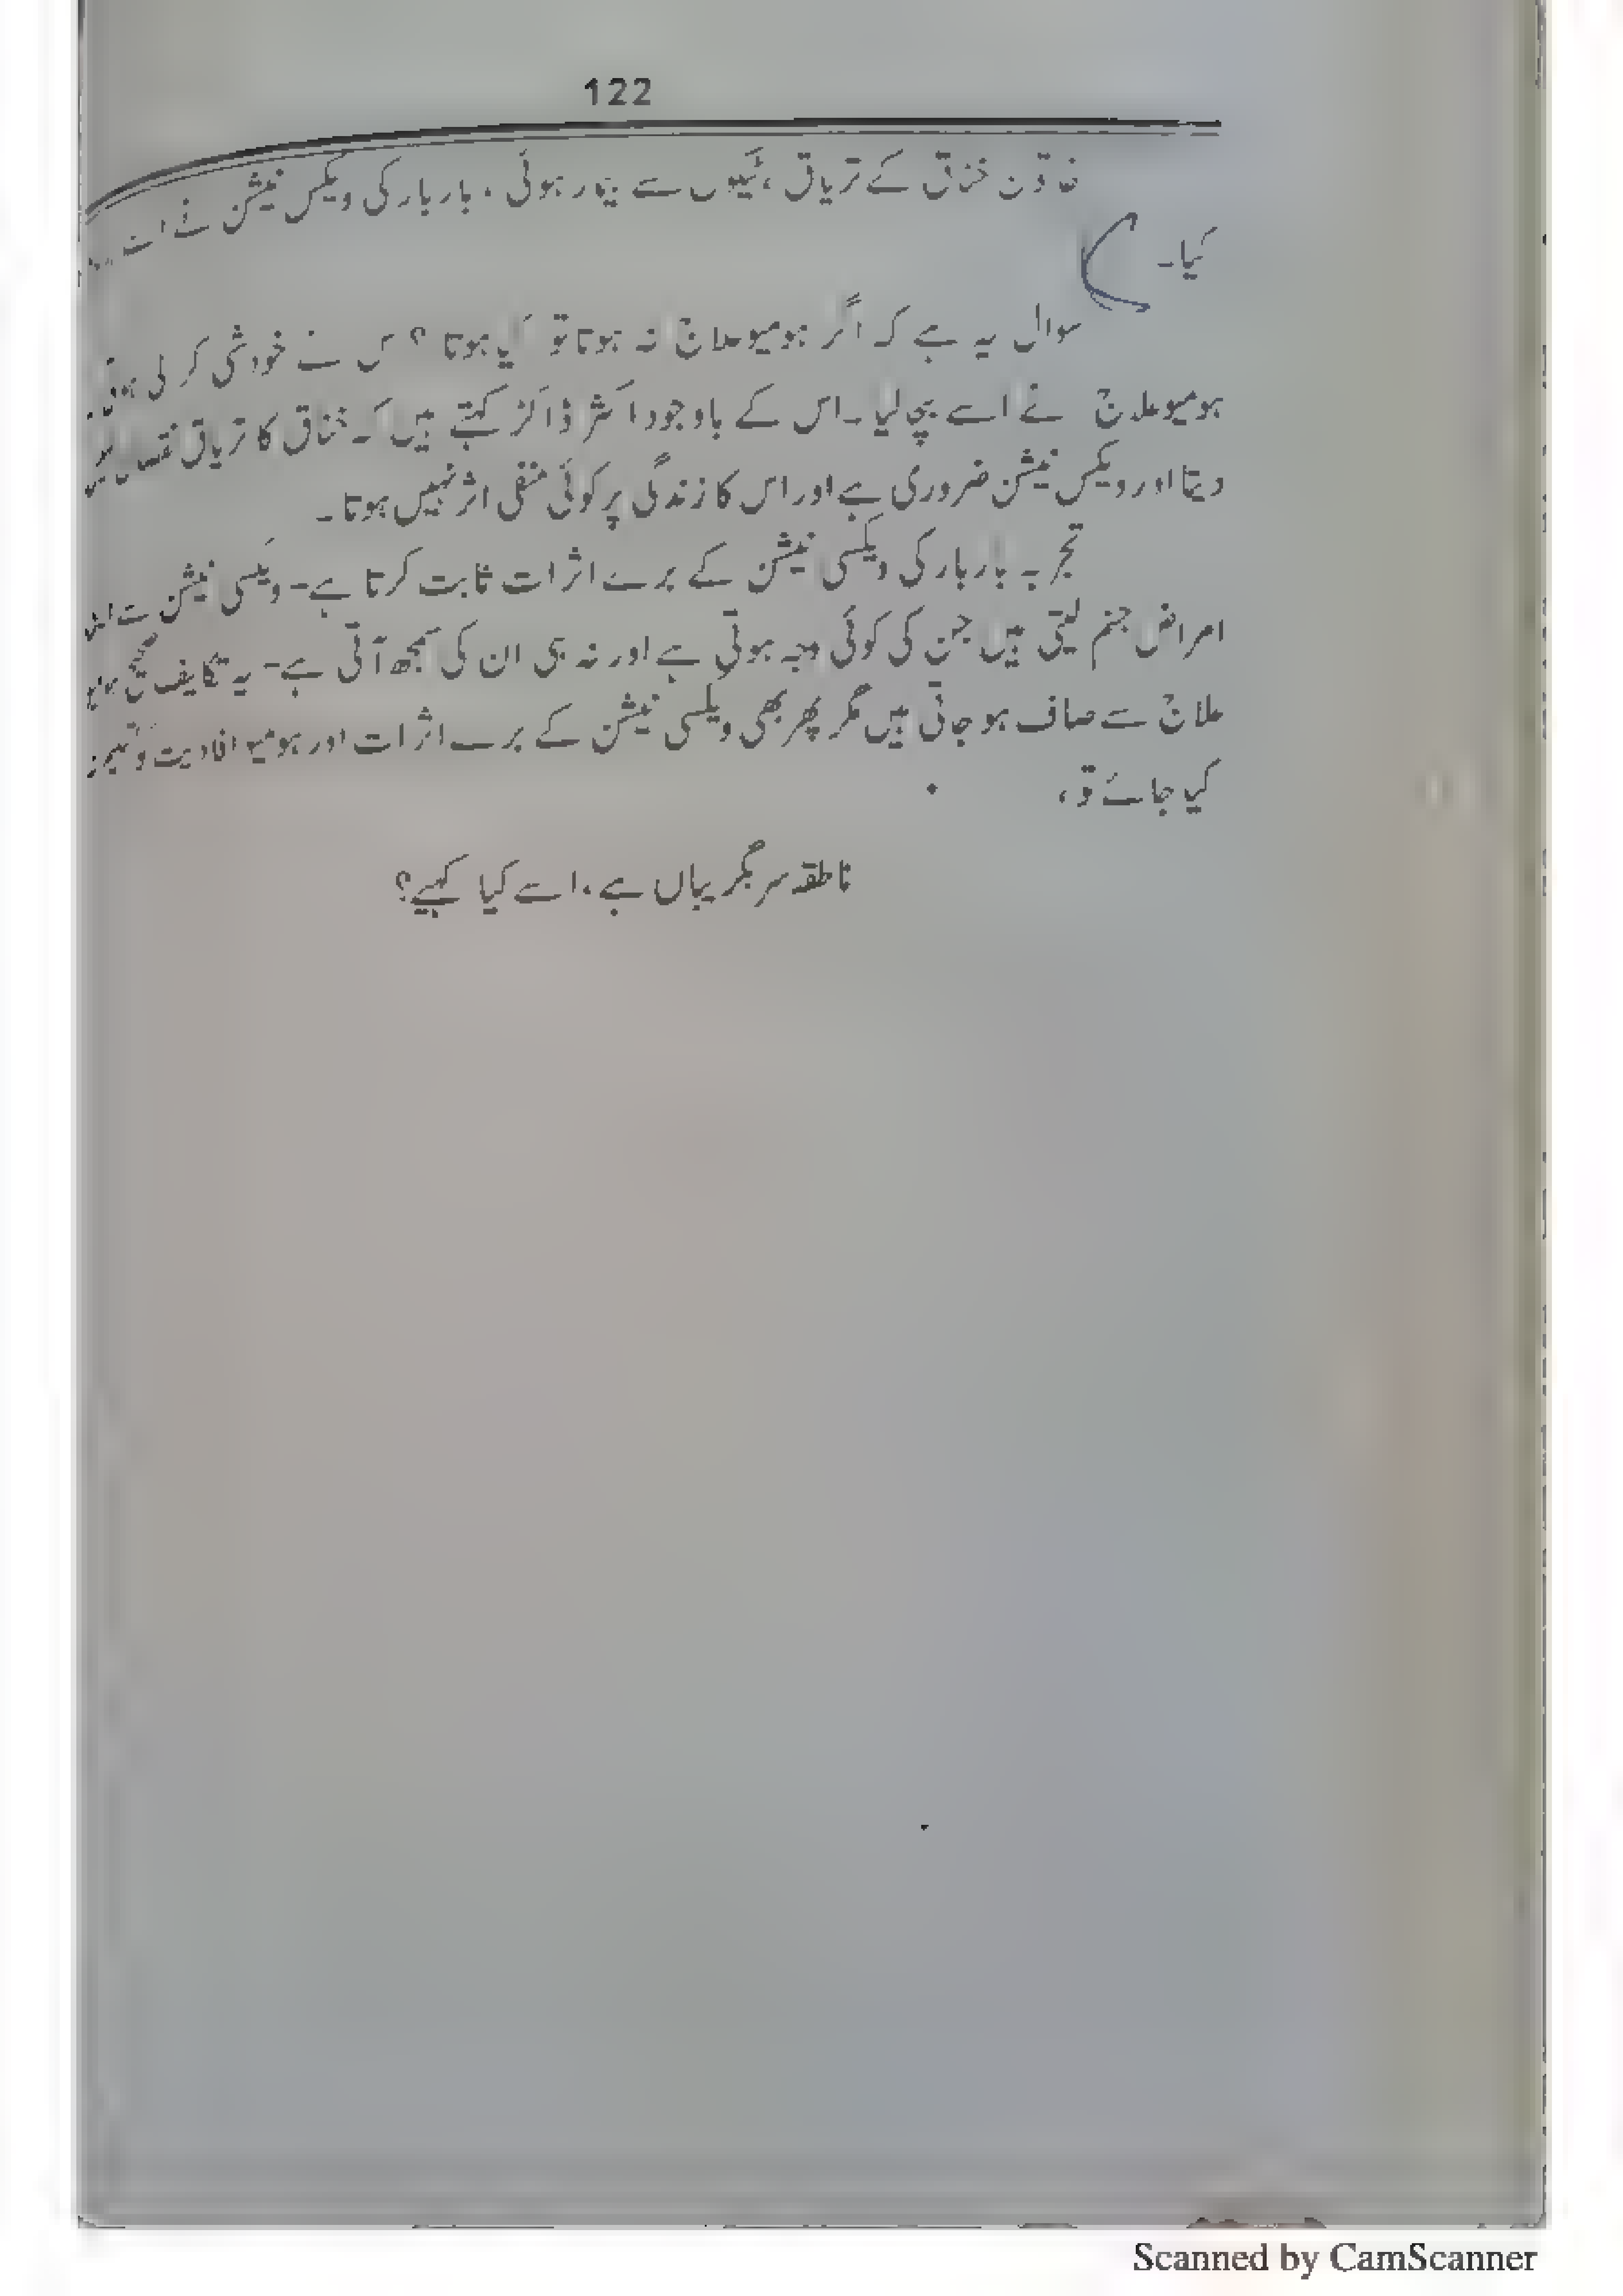 122
خاتون خناق کے تریاق، ٹیکوں سے بیمار ہوئی، بار بار کی ویکس نیشن نے
کیا۔
سوال یہ ہے کہ اگر ہومیوعلاج نہ ہوتا تو کیا ہوتا ؟ اس نے خودکشی کر لی ہوتی۔
ہومیوعلاج نے اسے بچا لیا۔ اس کے باوجود اکثر ڈاکٹر کہتے ہیں کہ خناق کا تریاق نقصان نہیں
دیتا اور ویکس نیشن ضروری ہے اور اس کا زندگی پر کوئی منفی اثر نہیں ہوتا۔
تجربہ بار بار کی ویکسی نیشن کے برے اثرات ثابت کرتا ہے۔ ویکسی نیشن سے
امراض جنم لیتی ہیں جن کی کوئی وجہ ہوتی ہے اور نہ ہی ان کی سمجھ آتی ہے۔ یہ تکالیف صحیح ہومیو
علاج سے صاف ہو جاتی ہیں مگر پھر بھی ویکسی نیشن کے برے اثرات اور ہومیو افادیت کو تسلیم نہ
کیا جائے تو،
ناطقہ سر بگریباں ہے، اسے کیا کہیے؟
Scanned by CamScanner